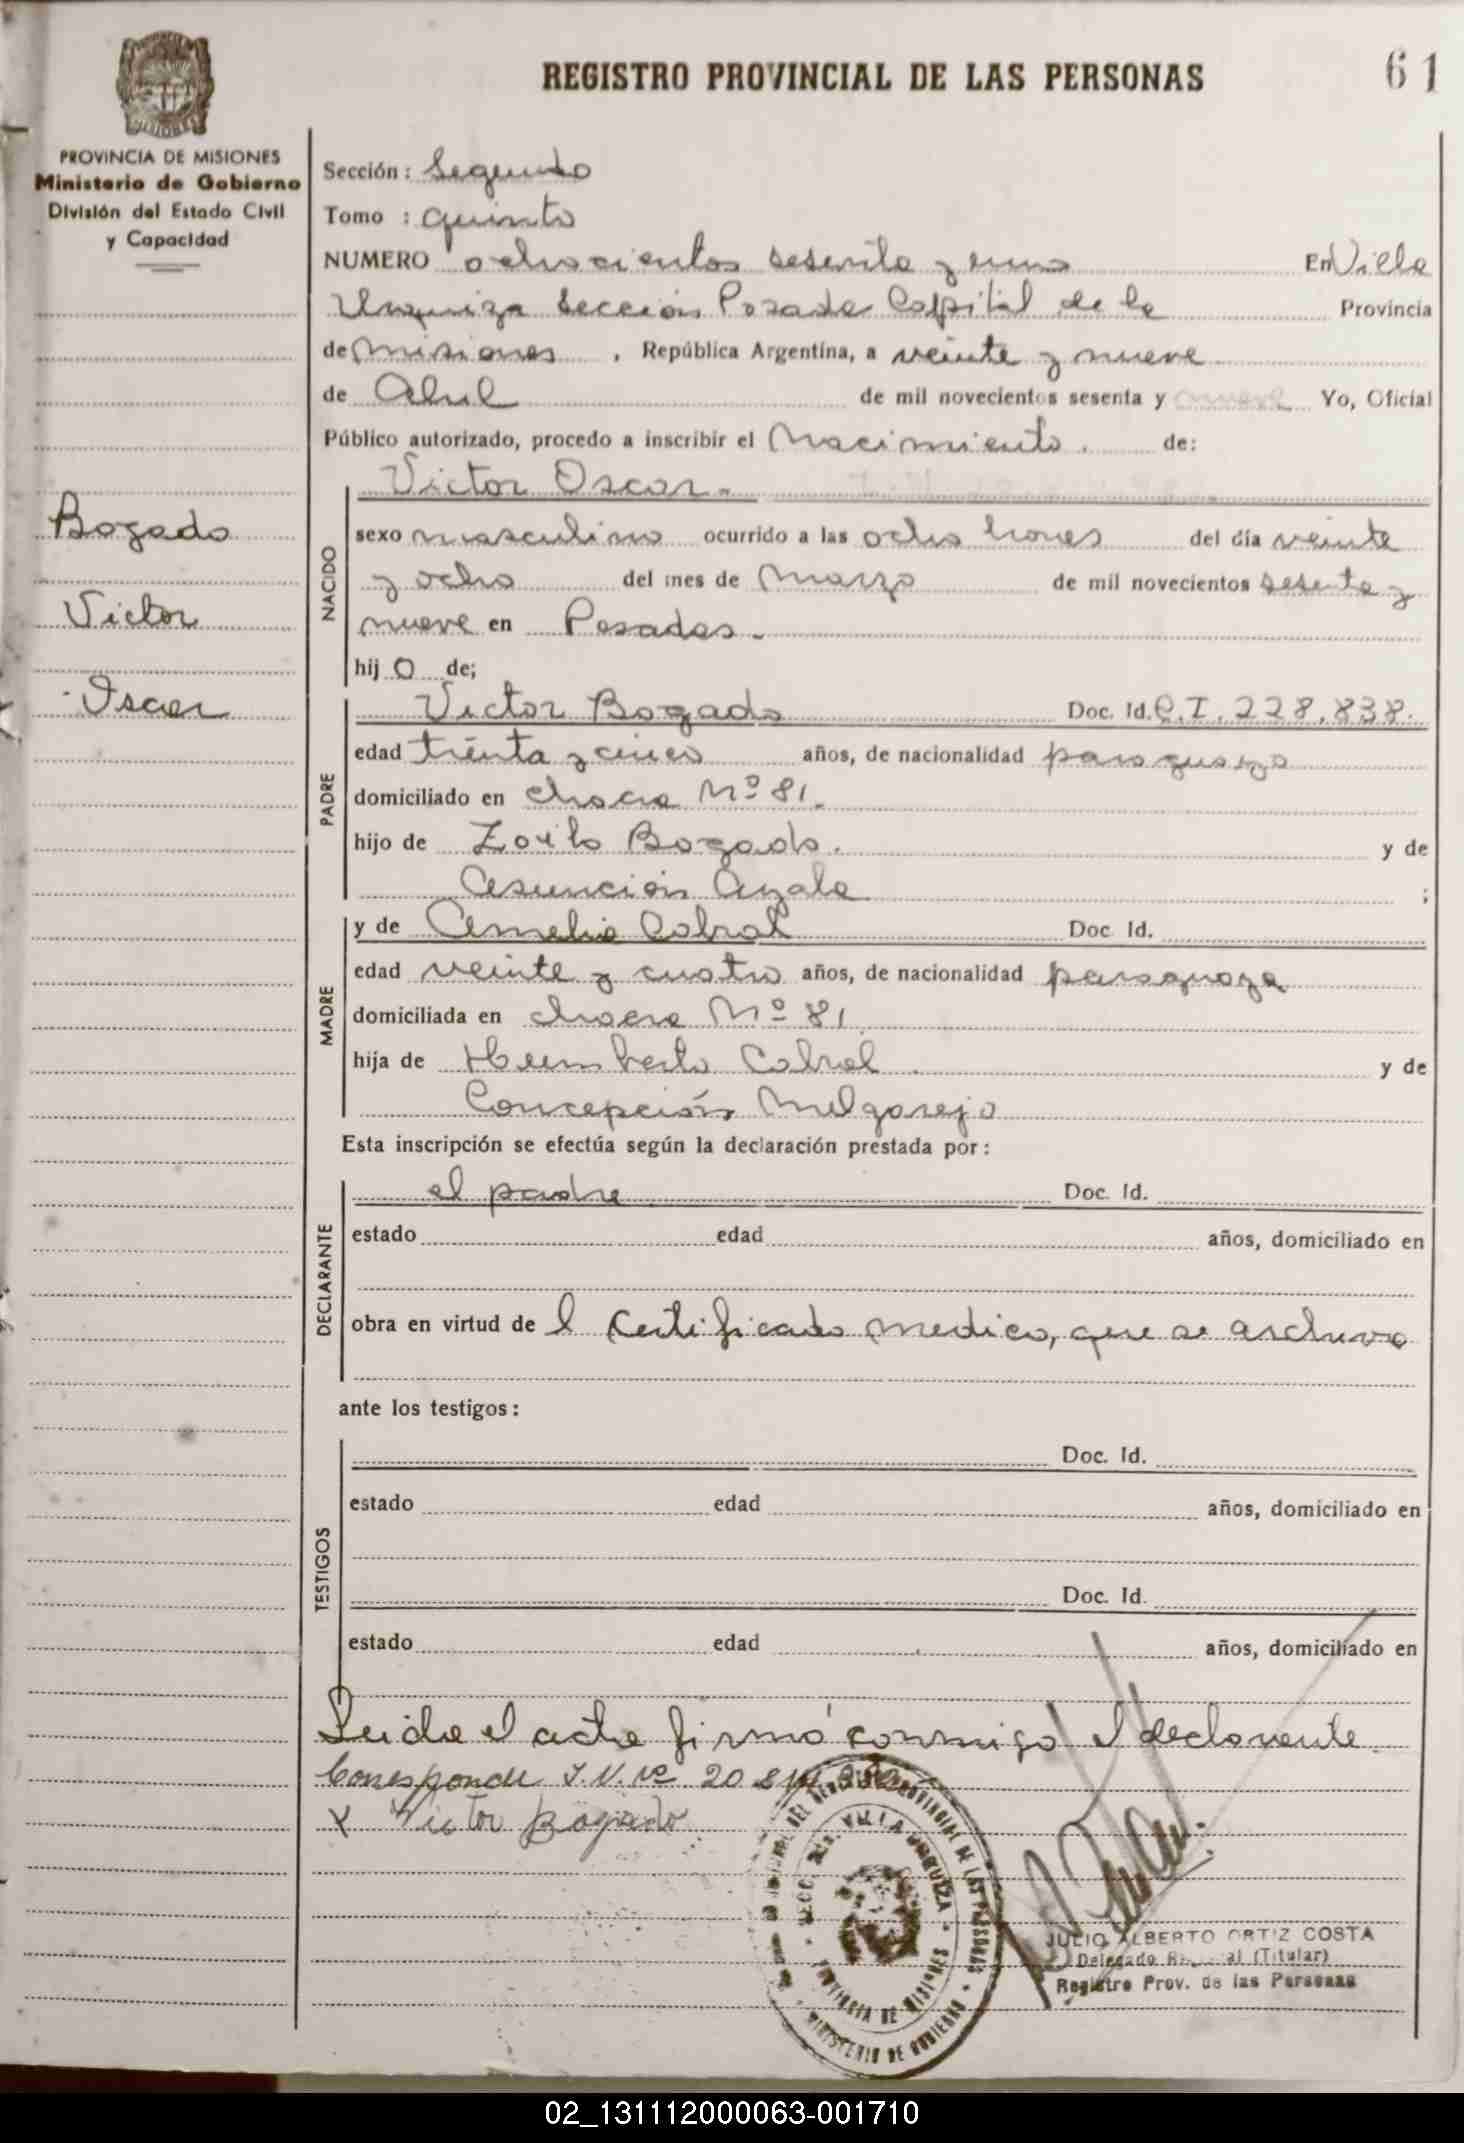 REGISTRO PROVINCIAL DE LAS PERSONAS
61
PROVINCIA DE MISIONES
Ministerio de Gobierno
División del Estado Civil
y Capacidad
Bogado
Victor
Oscar
Sección: Segundo
Tomo: quinto
NUMERO ochocientos sesenta y uno En Villa
Urquiza Sección Posadas Capital de la Provincia
de misiones, República Argentina, a veinte y nueve
de Abril de mil novecientos sesenta y nueve Yo, Oficial
Público autorizado, procedo a inscribir el Nacimiento. de:
NACIDO
Victor Oscar.-
sexo masculino ocurrido a las ocho horas del día veinte
y ocho del mes de Marzo de mil novecientos sesenta y
nueve en Posadas.-
hij o de;
PADRE
Victor Bogado Doc. Id. C.I. 228.838.
edad treinta y cinco años, de nacionalidad paraguayo
domiciliado en chacra Nº 81.
hijo de Zoilo Bogado. y de
Asunción Ayala ;
MADRE
y de Amelia Cabral Doc Id.
edad veinte y cuatro años, de nacionalidad paraguaya
domiciliada en chacra Nº 81
hija de Humberto Cabral y de
Concepción Melgarejo
Esta inscripción se efectúa según la declaración prestada por:
DECLARANTE
el padre Doc. Id.
estado edad años, domiciliado en
obra en virtud de l certificado medico, que se archiva
ante los testigos:
TESTIGOS
Doc. Id.
estado edad años, domiciliado en
Doc. Id.
estado edad años, domiciliado en
Leida el acta firmó conmigo el declarante.
Corresponde I.N. no 20
x Victor Bogado
SECC. VILLA URQUIZA
PROVINCIAL DE LAS PERSONAS
PROVINCIA DE MISIONES
MINISTERIO DE GOBIERNO
JULIO ALBERTO ORTIZ COSTA
Delegado (Titular)
Registro Prov. de las Personas
02_131112000063-001710